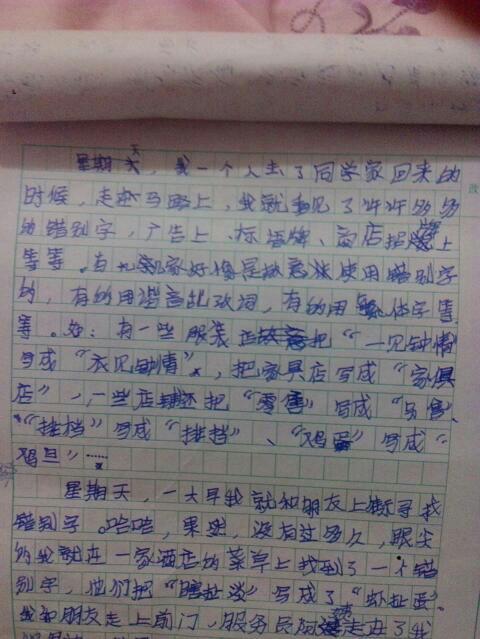 星期天，我一个人去了同学家回来的
时候，走在马路上，我就看见了许许多多
的错别字，广告上、标语牌、商店招牌上
等等。有九家好像是故意使用错别字
的，有的用谐音乱改词，有的用繁体字等
等。如：有一些服装店故意把“一见钟情
写成“衣见钟情”，把家具店写成“家俱
店”，一些店还把“零售”写成“另售、
“排档”写成“排挡”、“鸡蛋”写成“
鸡旦”……
星期天，一大早我就和朋友上街寻找
错别字。哈哈，果然，没有过多久，眼尖
的我就在一家酒店的菜单上找到了一个错
别字，他们把“瞎扯淡”写成了“虾扯蛋”。
我和朋友走上前门，服务员阿姨走在了我